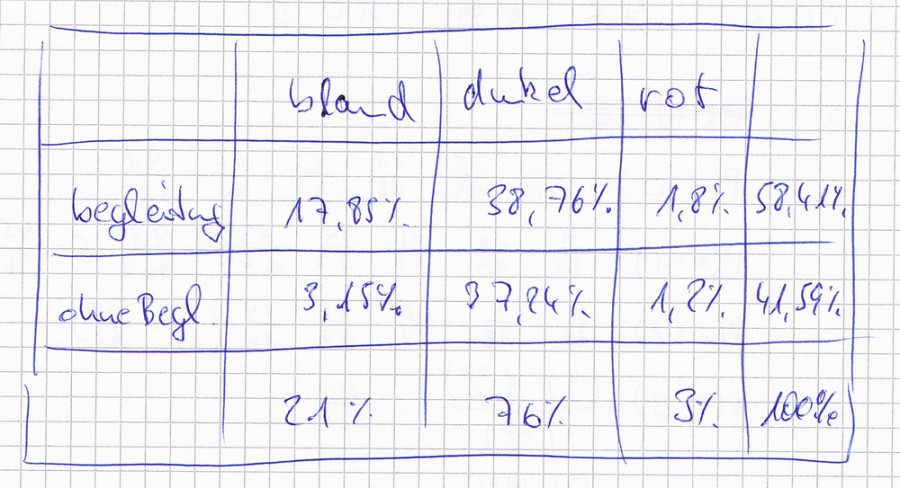 bland dukel rot
begleitung 17,85% 38,76% 1,8% 58,41%
ohne Begl. 3,15% 37,24% 1,2% 41,59%
21% 76% 3% 100%